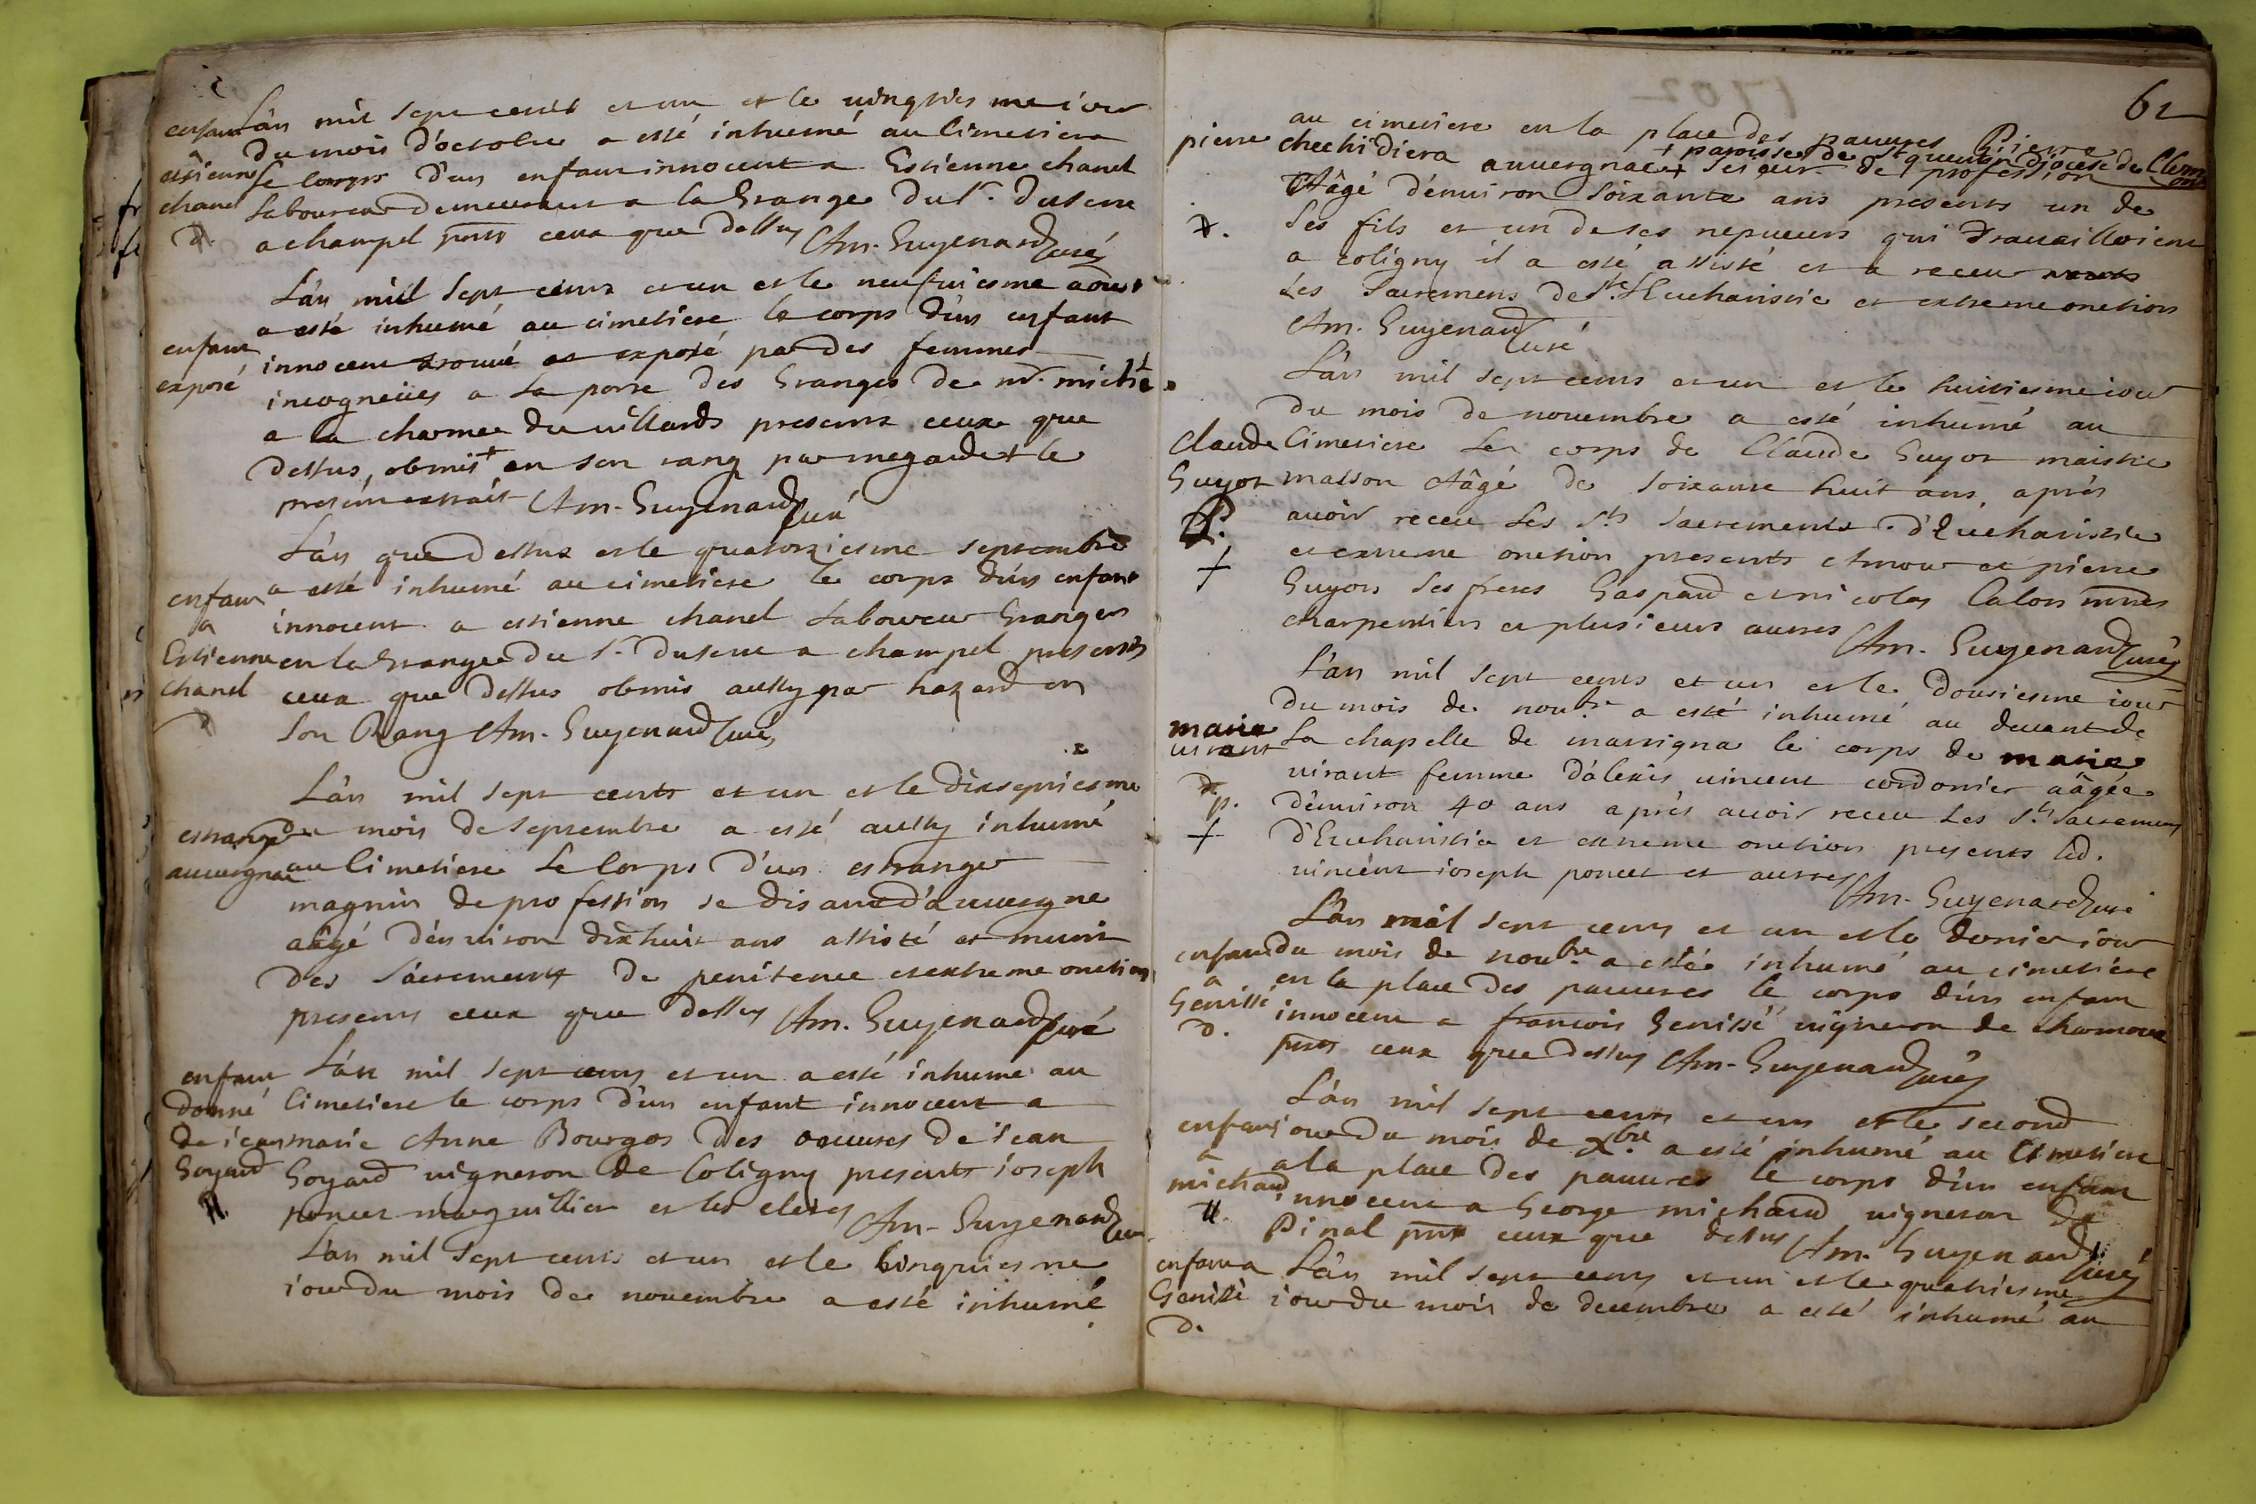 enfant L'an mil sept cents et un et le vingtiesme iour
du mois d'octobre a esté inhumé au Cimetiere
estienne le Corps d'un enfant innocent a Estienne chanel
chanel laboureur demeurant a la Grange du Sr. Duserre
d. a champel pnts ceux que dessus Am. Guyenard Curé
L'an mil sept cents et un et le neufuiesme aoust
a esté inhumé au cimetiere le corps d'un enfant
enfant innocent trouué et exposé par des femmes
exposé incogneües a la porte des Granges de mr. michel
a la charme du villards presents ceux que
dessus, obmis + en son rang par megarde + le
present extrait Am. Guyenard Curé
L'an que dessus et le quatorziesme septembre
enfant a esté inhumé au cimetiere le corps d'un enfant
a innocent a estienne chanel laboureur Granger
Estienne en la Grange du Sr. Duserre a champel presents
chanel ceux que dessus obmis aussy par hazard en
d son Rang Am. Guyenard Curé
L'an mil sept cents et un et le dixseptiesme
estranger du mois de septembre a esté aussy inhumé
auuergnac au Cimetiere le Corps d'un estranger
magnin de profession se disant d'auuergne
aâgé d'enuiron dixhuit ans assisté et munit
des Sacrements de penitence et extreme onction
presents ceux que dessus Am. Guyenard Curé
enfant L'an mil sept cens et un a esté inhumé au
donné Cimetiere le corps d'un enfant innocent a
de iean marie Anne Bourgos des oeuures de iean
Goyard Goyard vigneron de Coligny presents ioseph
H. poncet marguillier et les clercs Am. Guyenard Curé
L'an mil sept cents et un et le Cinquiesme
iour du mois de nouembre a esté inhumé
1702
62
au cimetiere en la place des pauures Pierre
pierre chechidiera auuergnac + + paroisse de St quentin diocese de Clermont
sieur de profession
Aâgé d'enuiron soixante ans presents un de
d. ses fils et un de ses nepueux qui trauailloient
a coligny il a esté assisté et a receu
les Sacremens de Ste. Eucharistie et extreme onction
Am. Guyenard Curé
L'an mil sept cents et un et le huitiesme iour
du mois de nouembre a esté inhumé au
Claude Cimetiere le corps de Claude Guyot maistre
Guyot masson Aâgé de soixante huit ans apres
P. auoir receu les Sts Sacrements d'Eucharistie
+ et extreme onction presents Amour et pierre
Guyon ses freres Gaspard et nicolas Calon mres
charpentiers et plusieurs autres Am. Guyenard Curé
L'an mil sept cents et un et le dousiesme iour
du mois de noubre a esté inhumé au deuant de
marie la chapelle de marrigna le corps de marie
virant virant femme d'alexis vincent cordonier aâgée
d. p. d'enuiron 40 ans apres auoir receu les Sts Sacremens
+ d'Eucharistie et extreme onction presents led.
vincent ioseph poncet et autres Am. Guyenard Curé
L'an mil sept cens et un et le dernier iour
enfant du mois de noubre a esté inhumé au cimetiere
a en la place des pauures le corps d'un enfant
Genissé innocent a francois Genissé vigneron de charmoux
d. pnts ceux que dessus Am. Guyenard Curé
L'an mil sept cents et un et le second
enfant iour du mois de Xbre a esté inhumé au Cimetiere
a a la place des pauures le corps d'un enfant
michaud innocent a George michaud vigneron de
H. Pinal pnts ceux que dessus Am. Guyenard Curé
enfant a L'an mil sept cens et un et le quatriesme
Genissé iour du mois de decembre a esté inhumé au
d.